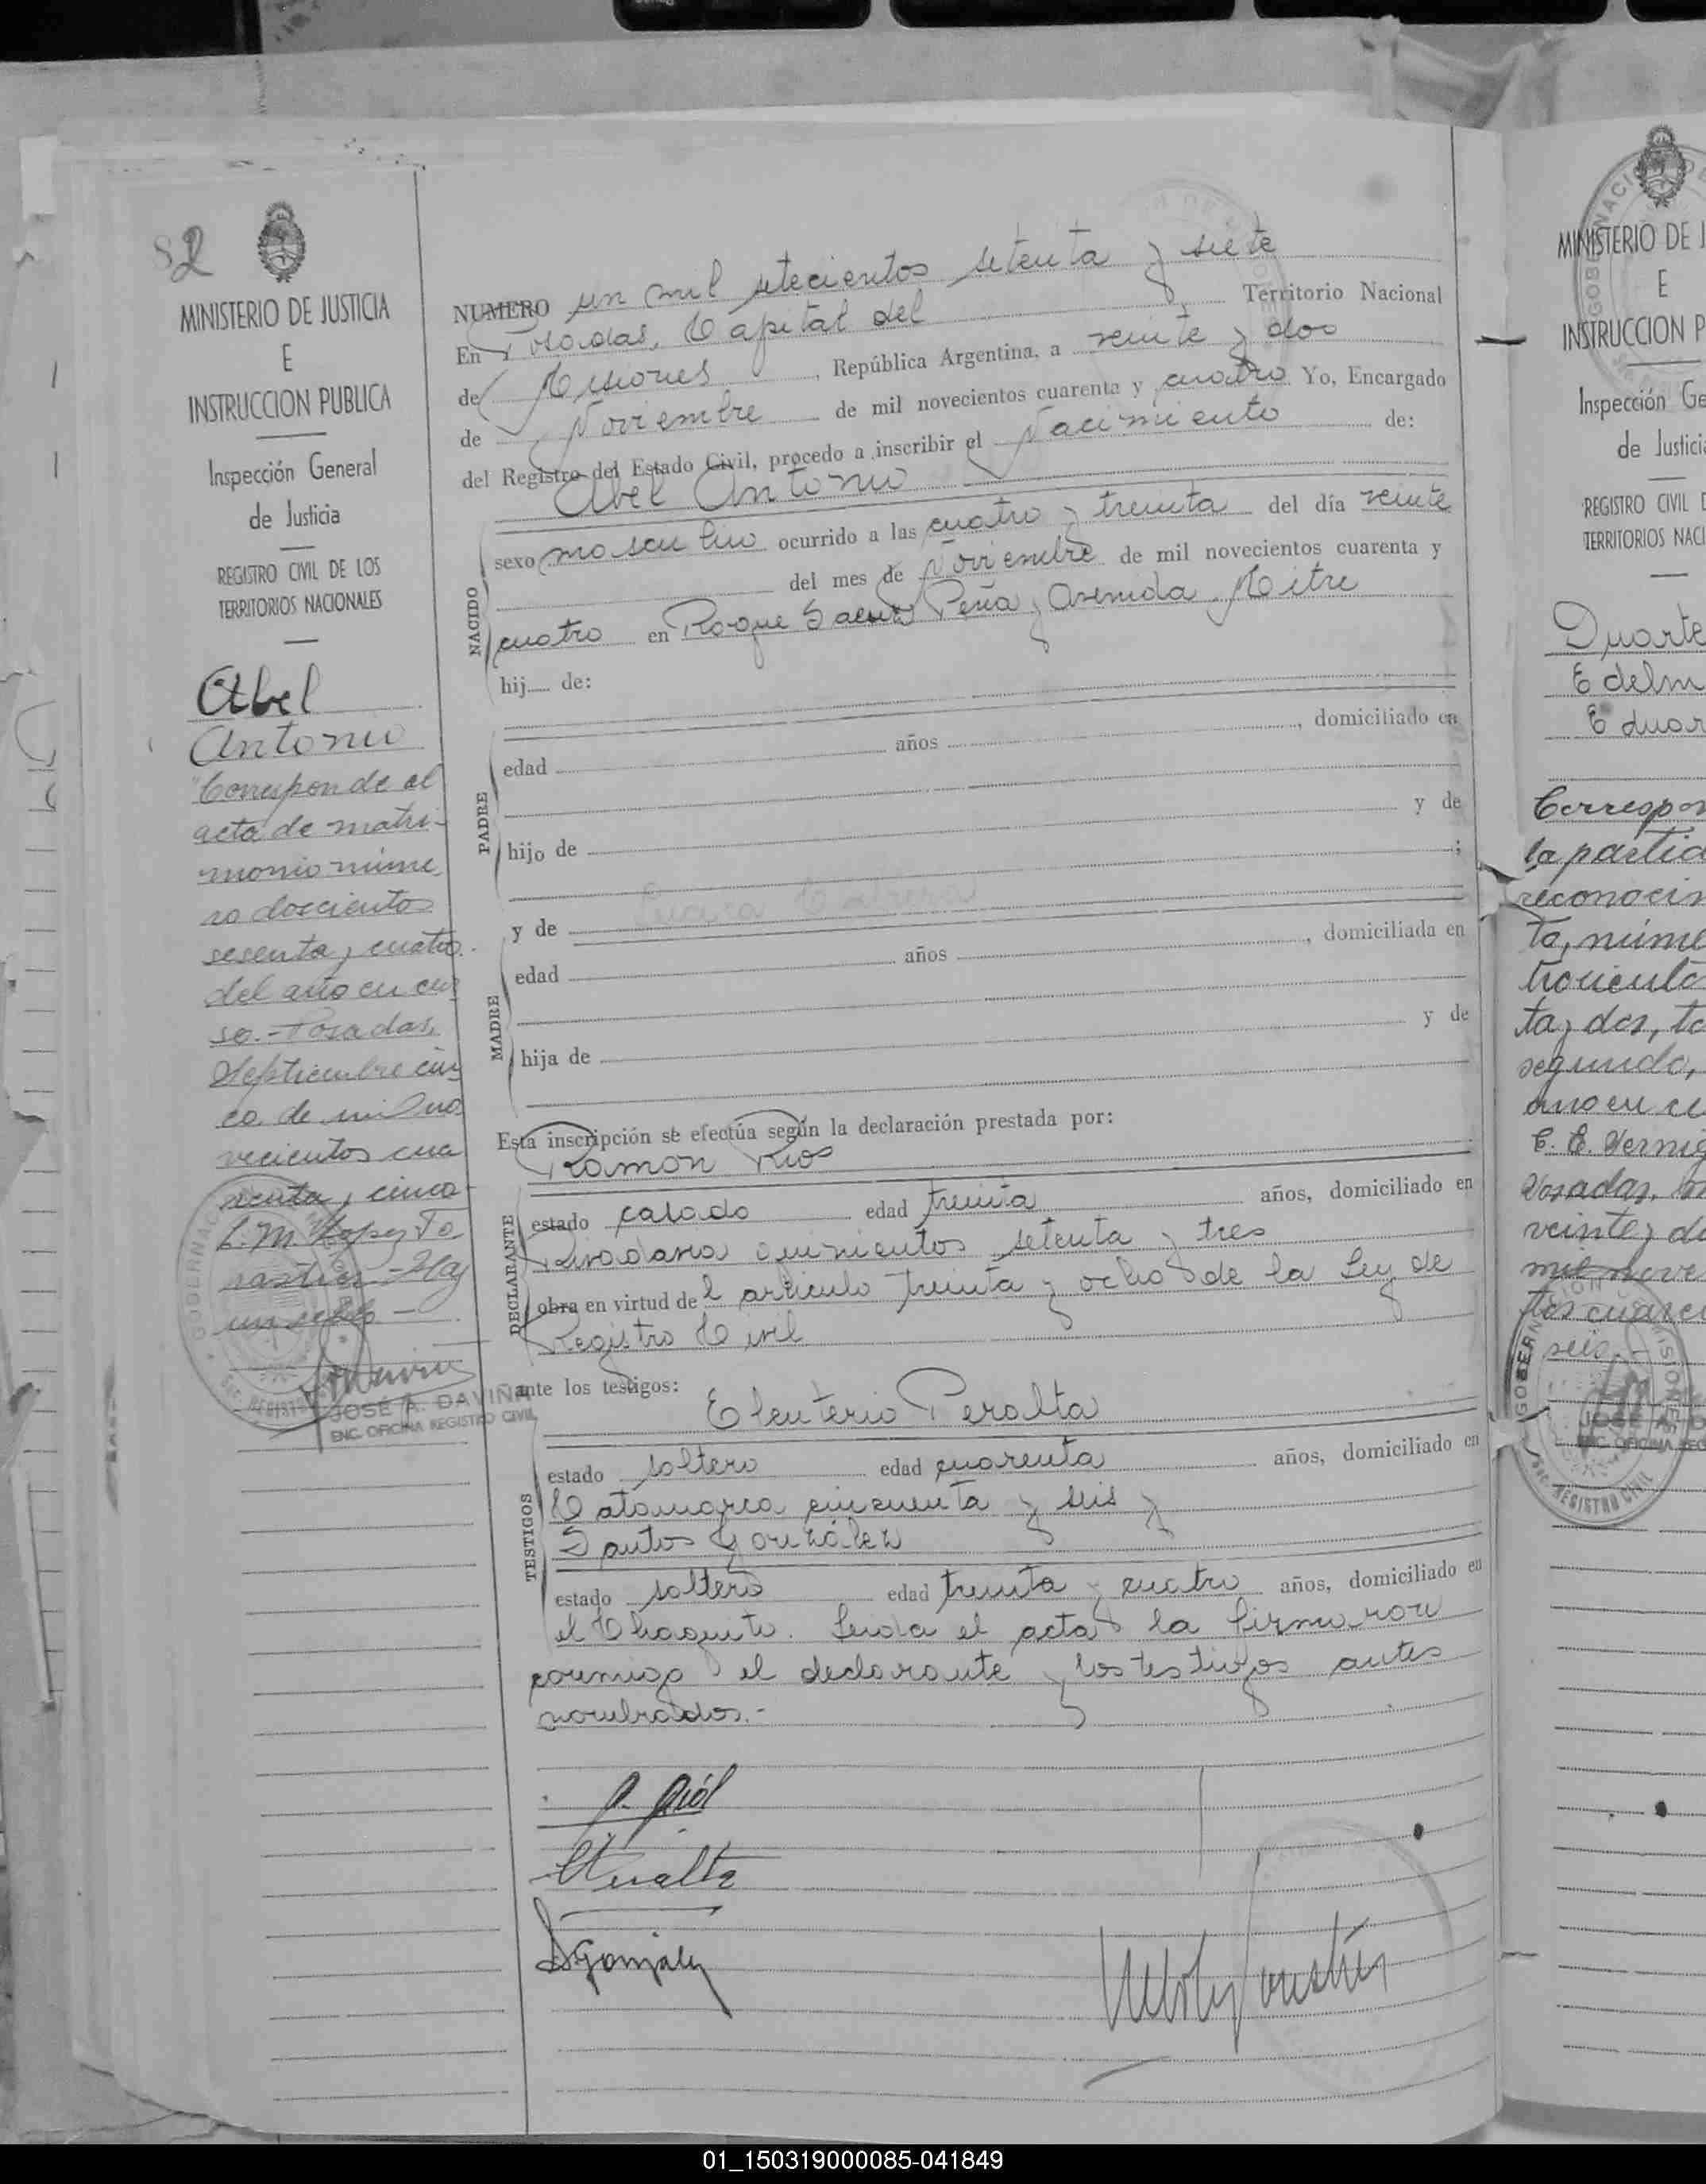 82
MINISTERIO DE JUSTICIA
E
INSTRUCCION PUBLICA
Inspección General
de Justicia
REGISTRO CIVIL DE LOS
TERRITORIOS NACIONALES
Abel
Antonio
Corresponde al
acta de matri-
monio núme
ro doscientos
sesenta y cuatro
del año en cur
so.- Posadas,
Septiembre cin
co de mil no
vecientos cua
renta y cinco
L. M. Lopez To
rastier - Hay
un sello -
JOSÉ A. DAVIÑA
ENC. OFICINA REGISTRO CIVIL
NUMERO un mil setecientos setenta y siete
En Posadas, Capital del Territorio Nacional
de Misiones, República Argentina, a veinte y dos
de Noviembre de mil novecientos cuarenta y cuatro Yo, Encargado
del Registro del Estado Civil, procedo a inscribir el Nacimiento de:
Abel Antonio
NACIDO
sexo masculino ocurrido a las cuatro y treinta del día veinte
del mes de Noviembre de mil novecientos cuarenta y
cuatro en Roque Saenz Peña y Avenida Mitre
hij..... de:
PADRE
edad años , domiciliado en
hijo de y de
;
y de
MADRE
edad años , domiciliada en
hija de y de
Esta inscripción se efectúa según la declaración prestada por:
Ramon Rios
DECLARANTE
estado casado edad treinta años, domiciliado en
Rivadavia quinientos setenta y tres
obra en virtud del articulo treinta y ocho de la Ley de
Registro Civil
ante los testigos:
Eleuterio Peralta
TESTIGOS
estado soltero edad cuarenta años, domiciliado en
Catamarca cincuenta y seis y
Santos González
estado soltero edad treinta y cuatro años, domiciliado en
el Chaquito. Leida el acta la firmaron
conmigo el declarante y los testigos antes
nombrados.-
SGonzalez
MINISTERIO DE J
E
INSTRUCCION P
Inspección Ge
de Justici
REGISTRO CIVIL D
TERRITORIOS NACI
Duarte
Edelm
Eduar
Correspon
la partid
reconocim
to, núme
ta y dos, to
segundo,
año en cu
Posadas,
veinte y d
mil nove
tos cuaren
seis.-
01_150319000085-041849